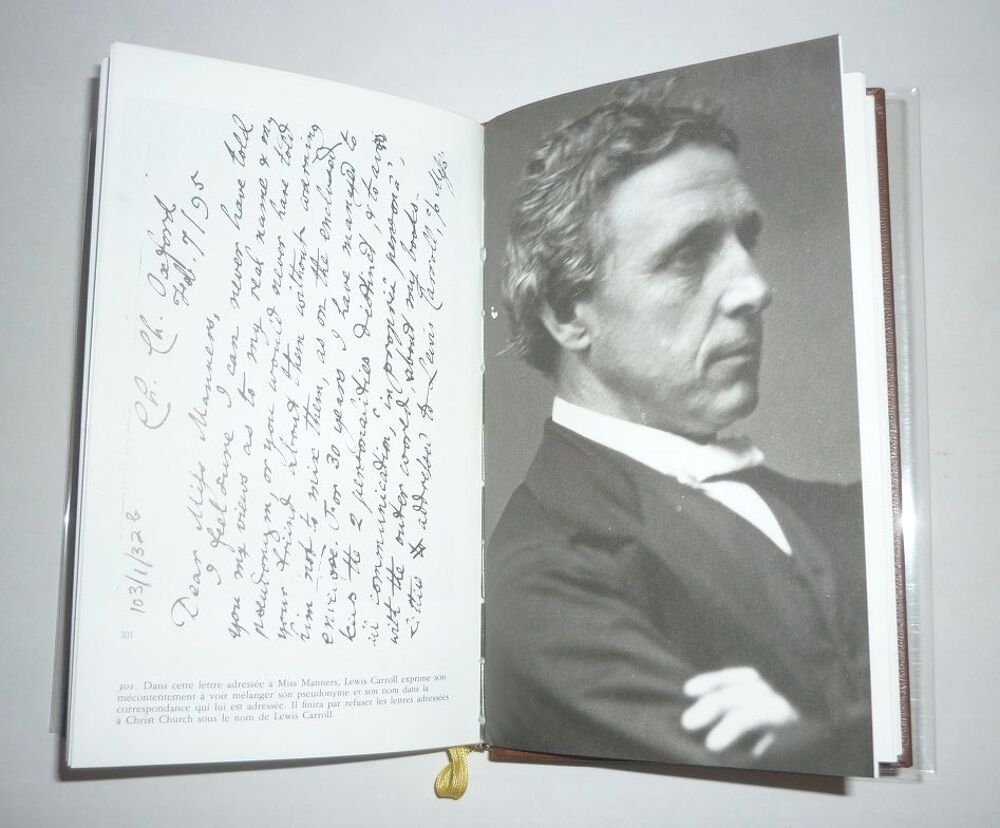 103/1/32b
Ch. Ch. Oxford
Feb. 7/95
Dear Miss Manners,
I feel sure I can never have told
you my views as to my real name & my
pseudonym, or you would never have told
your friend about them without warning
him not to mix them, as on the enclosed
envelope. For 30 years I have managed to
keep the 2 personalities distinct, & to avoid
all communication, in propriâ personâ,
with the outer world, about my books.
Letters addressed to "Lewis Carroll,
301
301. Dans cette lettre adressée à Miss Manners, Lewis Carroll exprime son
mécontentement à voir mélanger son pseudonyme et son nom dans la
correspondance qui lui est adressée. Il finira par refuser les lettres adressées
à Christ Church sous le nom de Lewis Carroll.